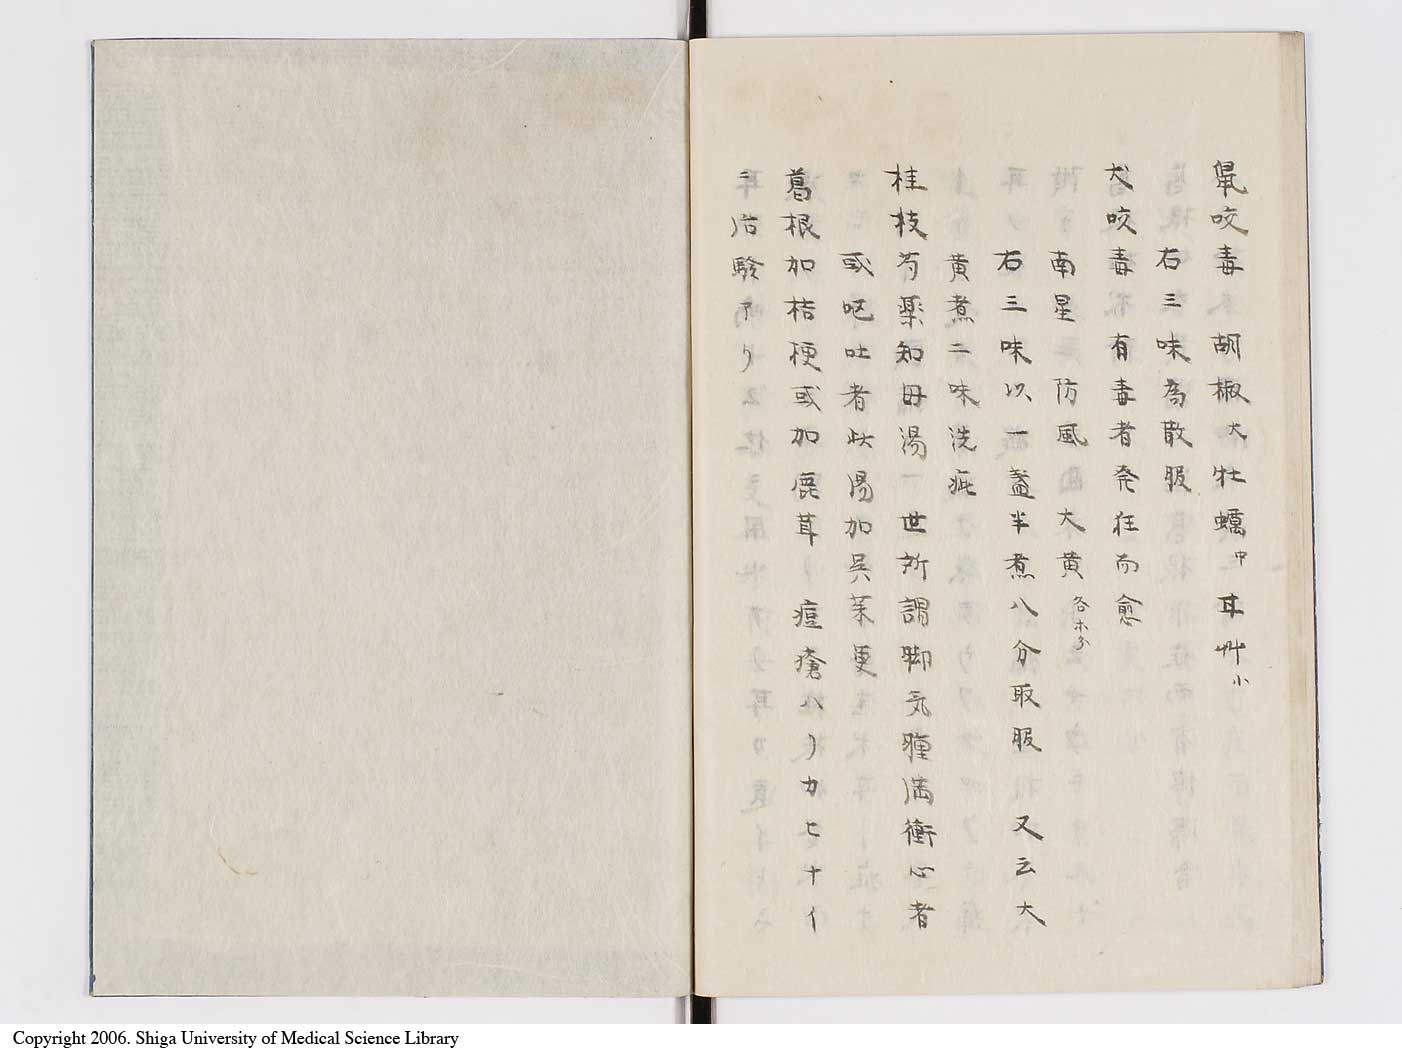 鼠咬毒 胡椒大 牡蠣中 甘艸小
右三味為散服
犬咬毒有毒者発狂而愈
南星防風曲大黄各等分
右三味以一盞半煮八分取服 又云大
黄煮二味洗疵
桂枝芍薬知母湯 世所謂脚気腫満衝心者
或呕吐者此湯加呉茱更
葛根加桔梗或加鹿茸 痘瘡ハリカヒナイ
ニ治験アリ
Copyright 2006. Shiga University of Medical Science Library